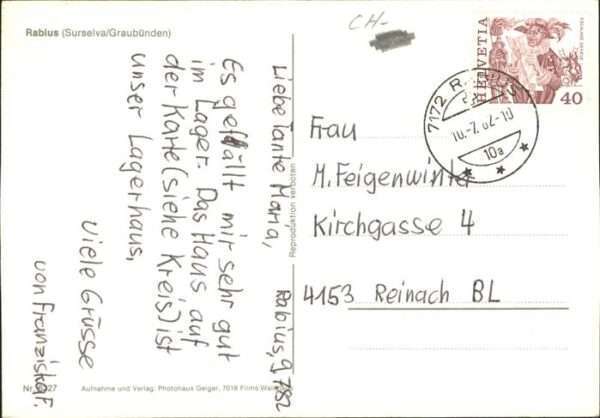 Rabius (Surselva/Graubünden)
CH-
HELVETIA
40
7172
10.-7.82-10
10a
Liebe Tante Maria,
Rabius, 9.7.82
Es gefällt mir sehr gut
im Lager. Das Haus auf
der Karte (siehe Kreis) ist
unser Lagerhaus.
Viele Grüsse
von Franziska F.
Frau
M. Feigenwinter
Kirchgasse 4
4153 Reinach BL
Reproduktion verboten
Aufnahme und Verlag: Photohaus Geiger, 7018 Films